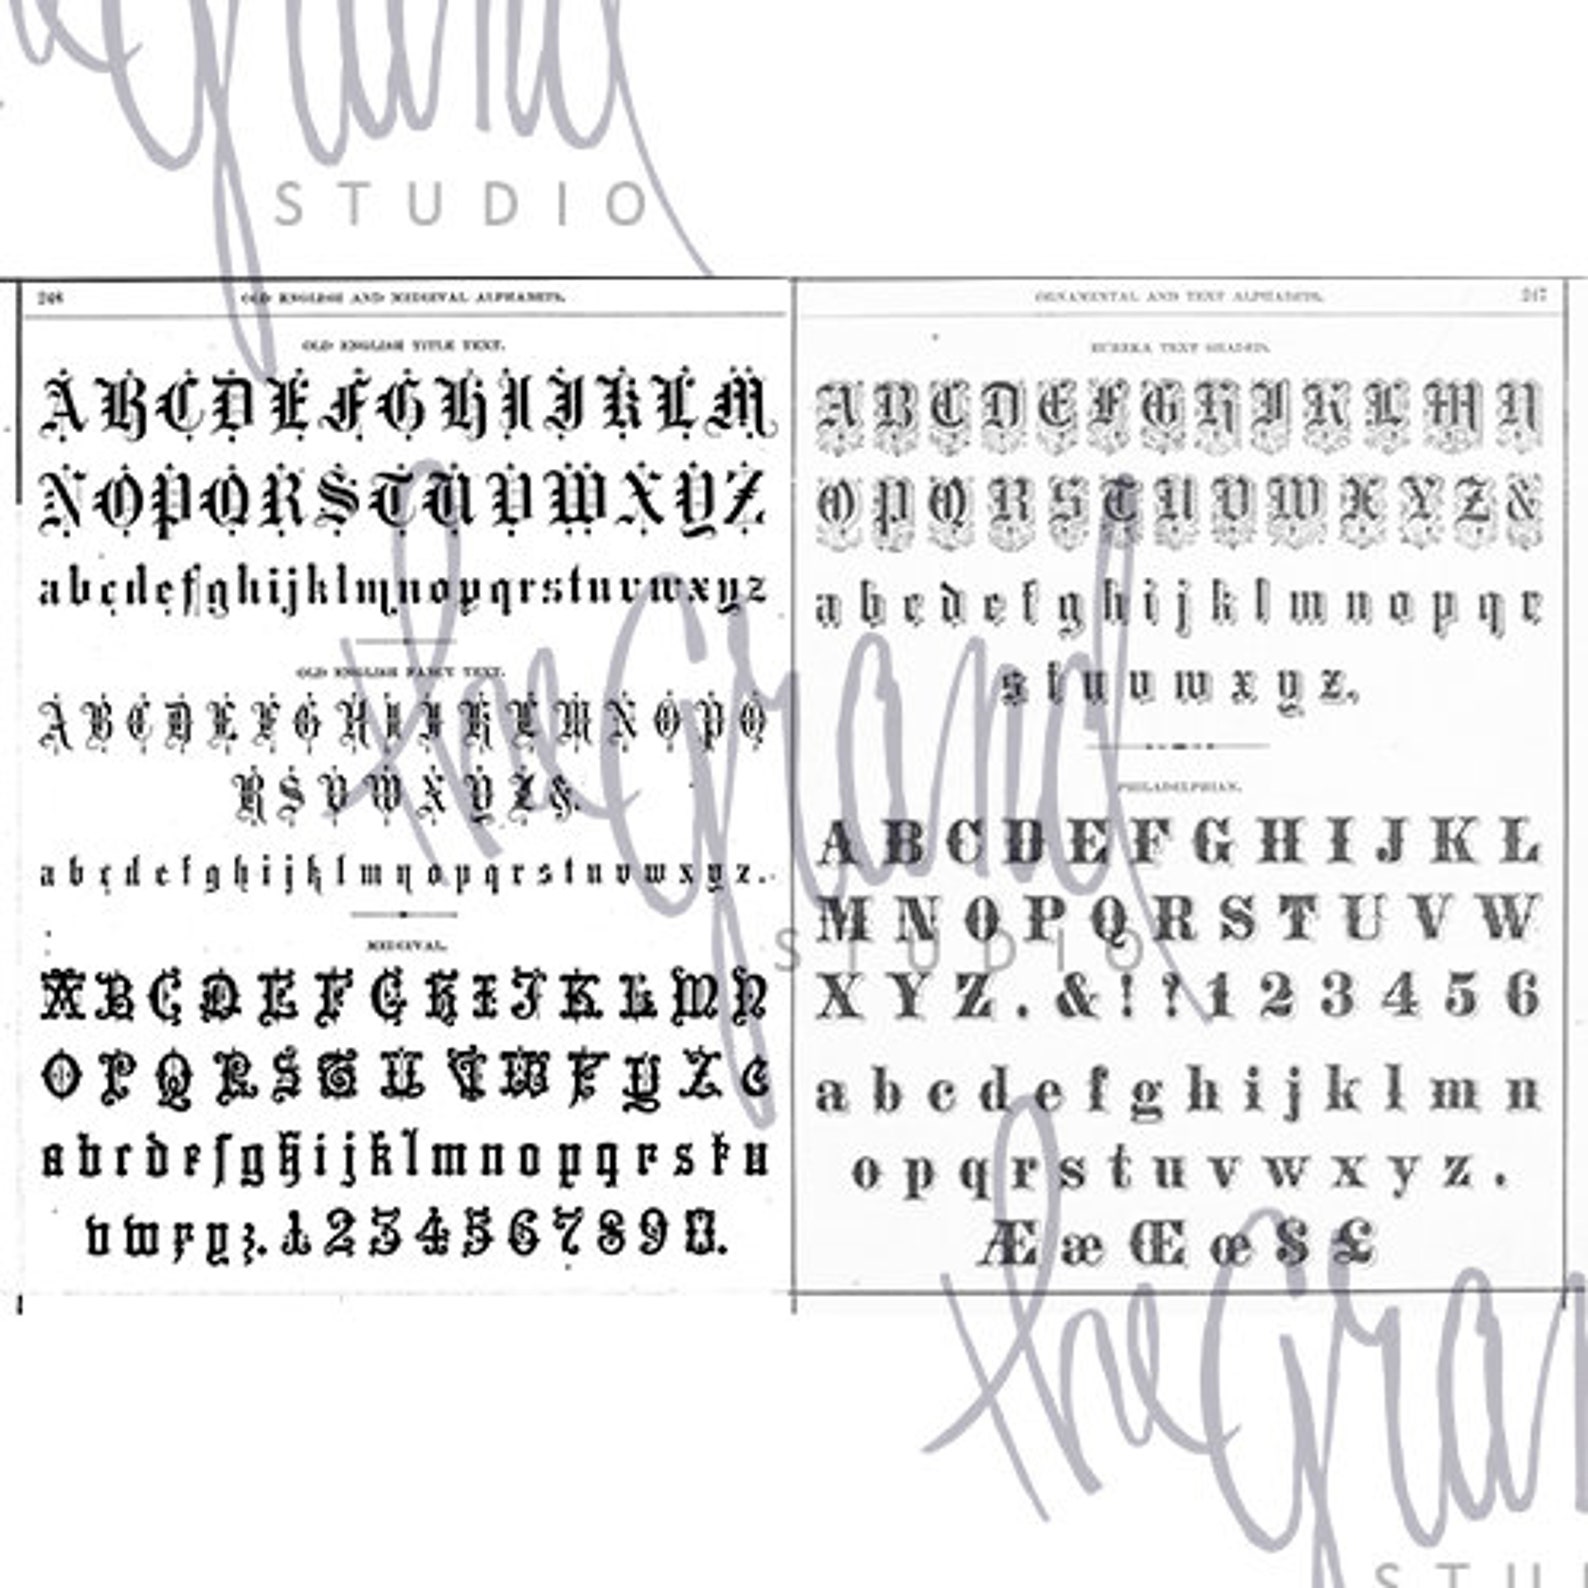 the Grand
STUDIO
246 OLD ENGLISH AND MEDIEVAL ALPHABETS.
OLD ENGLISH TITLE TEXT.
A B C D E F G H I J K L M
N O P Q R S T U V W X Y Z
a b c d e f g h i j k l m n o p q r s t u v w x y z
OLD ENGLISH FANCY TEXT.
A B C D E F G H I J K L M N O P Q
R S V W X Y Z &.
a b c d e f g h i j k l m n o p q r s t u v w x y z.
MEDIEVAL.
A B C D E F G H I J K L M N
O P Q R S T U V W X Y Z &
a b c d e f g h i j k l m n o p q r s t u
v w x y z. 1 2 3 4 5 6 7 8 9 0.
ORNAMENTAL AND TEXT ALPHABETS. 247
EUREKA TEXT SHADED.
A B C D E F G H I K L M N
O P Q R S T U V W X Y Z &
a b c d e f g h i j k l m n o p q r
s t u v w x y z.
PHILADELPHIAN.
A B C D E F G H I J K L
M N O P Q R S T U V W
X Y Z . & ! ? 1 2 3 4 5 6
a b c d e f g h i j k l m n
o p q r s t u v w x y z .
Æ æ Œ œ $ £
the Grand
STUDIO
the Gran
STU